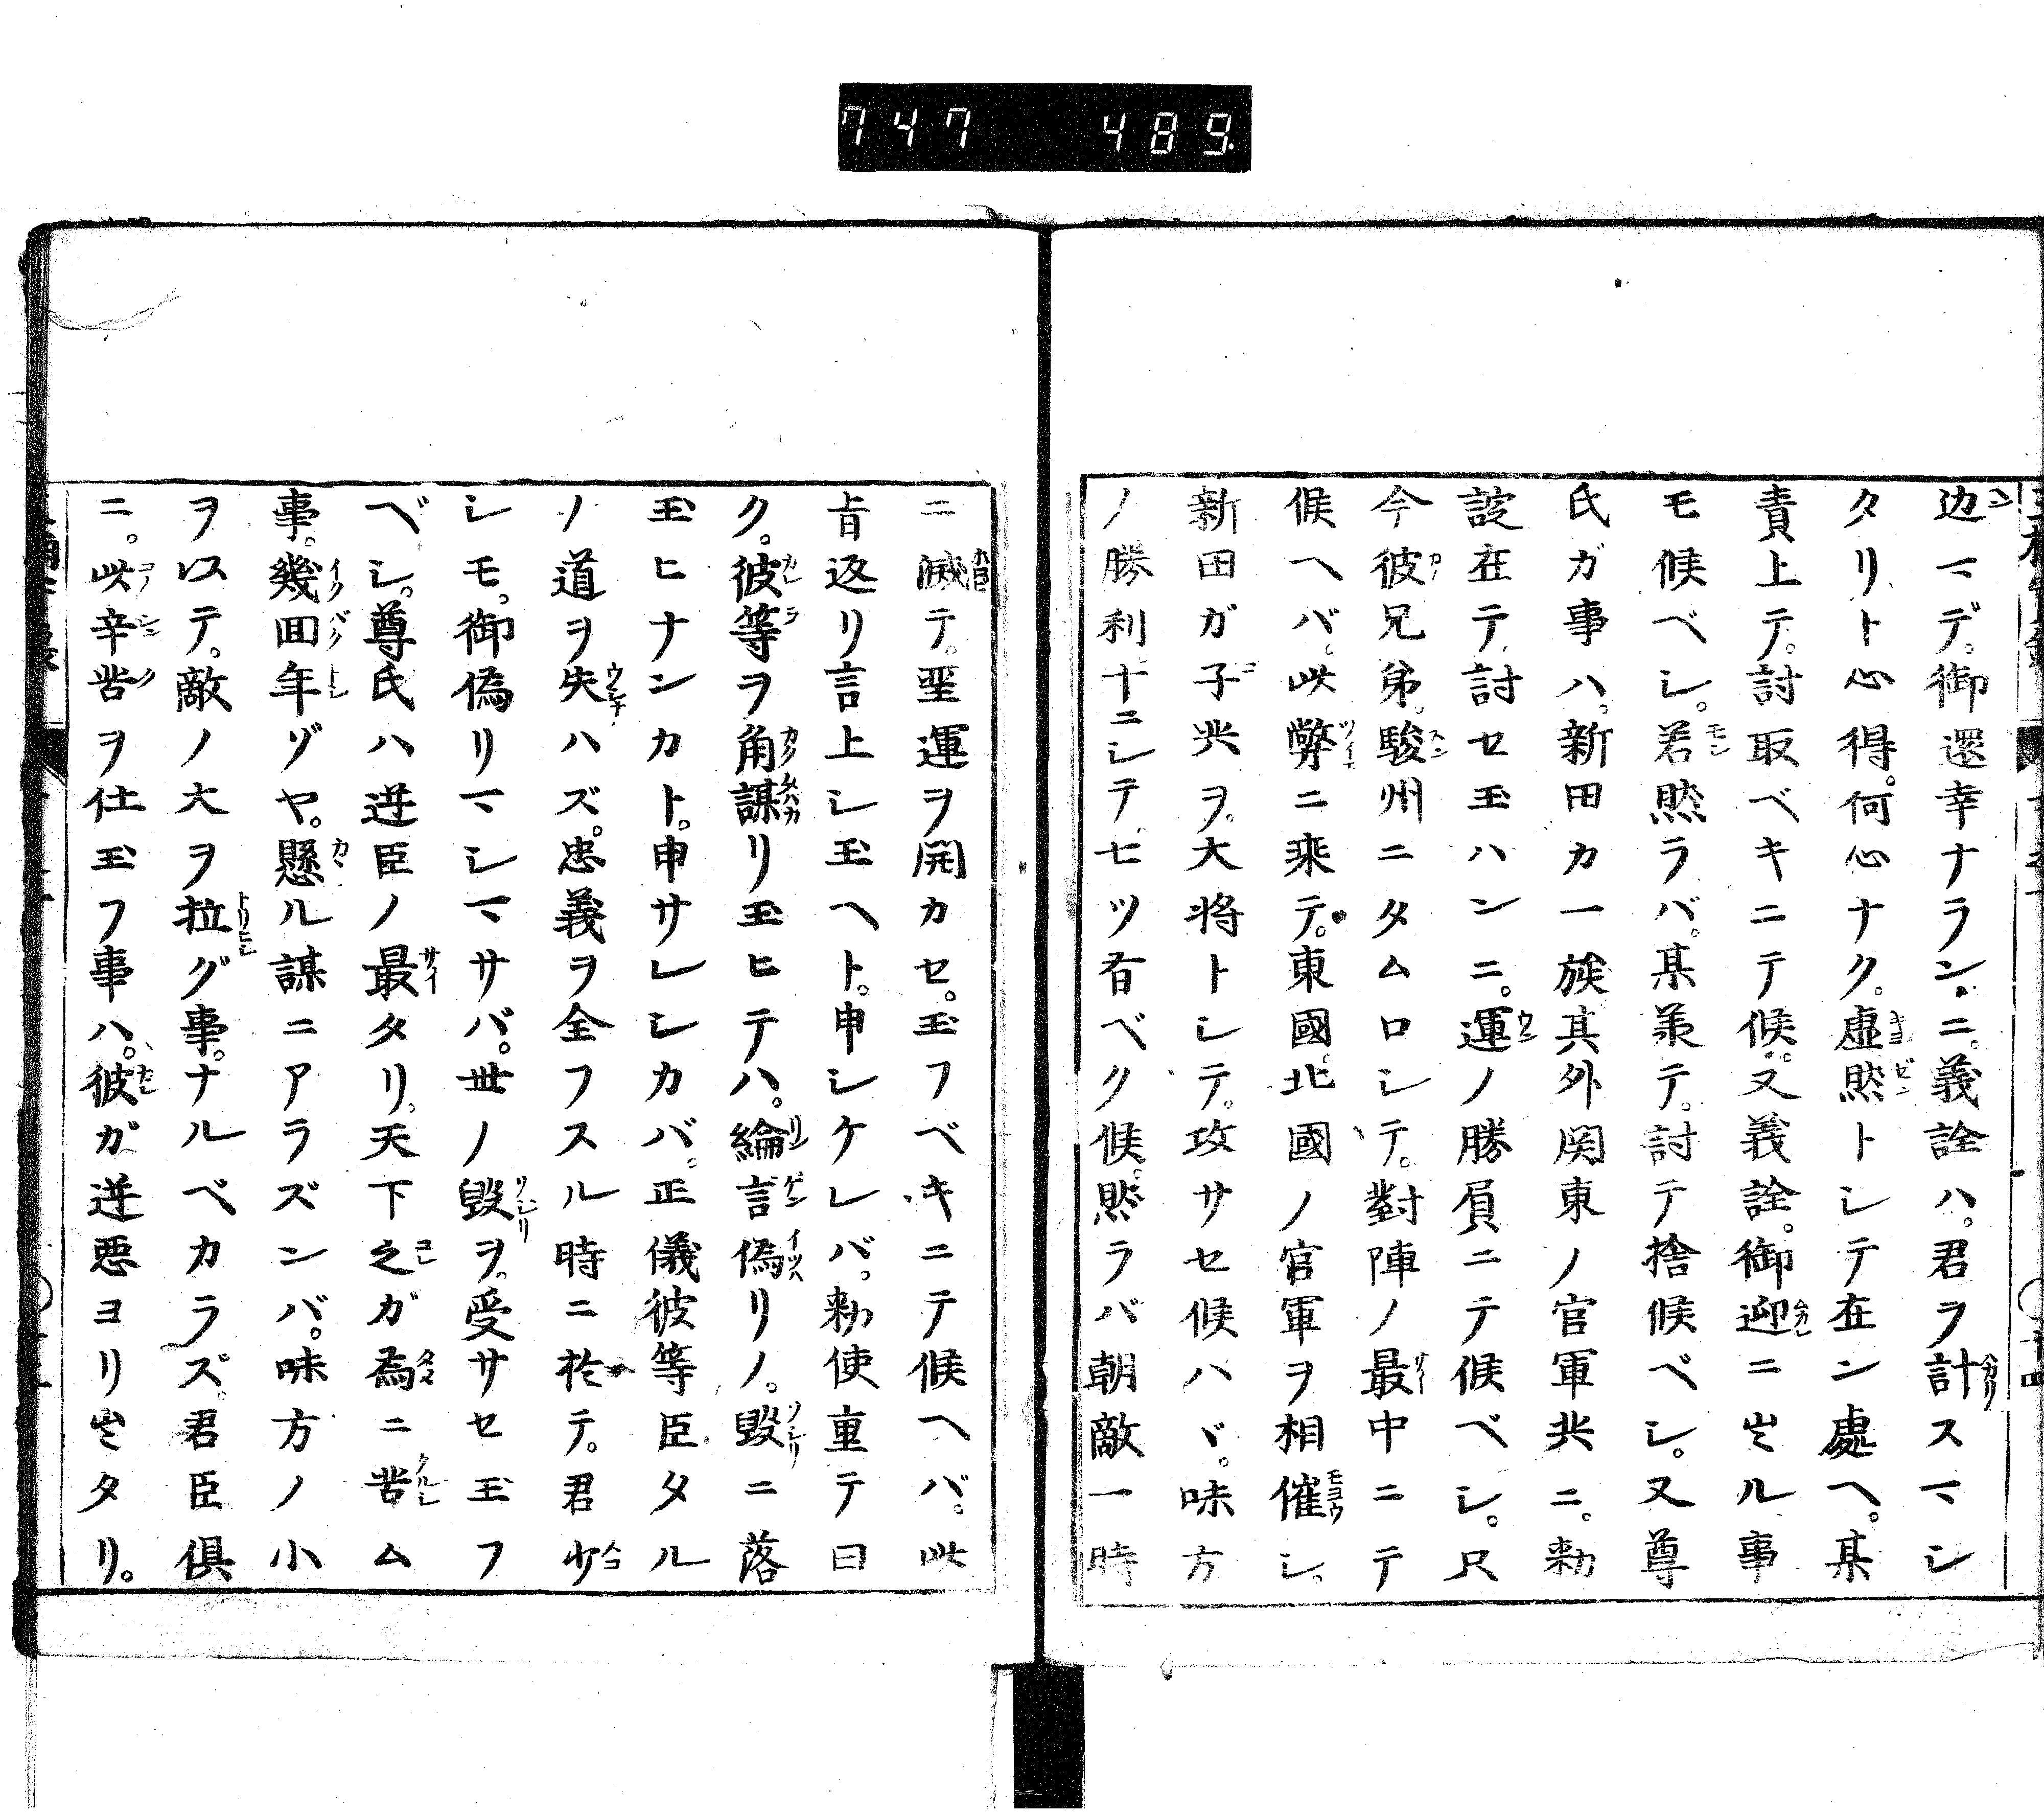 747 489.
辺マデ。御還幸ナラン。ニ。義詮ハ。君ヲ計スマシ
タリト心得。何心ナク。虚然トシテ在ン處ヘ。某
責上テ。討取ベキニテ候。又義詮。御迎ニ出ル事
モ候ベシ。若然ラバ。某兼テ。討テ捨候ベシ。又尊
氏ガ事ハ。新田カ一族其外関東ノ官軍共ニ。勅
諚在テ。討セ玉ハンニ。運ノ勝負ニテ候ベシ。只
今彼兄弟。駿州ニタムロシテ。對陣ノ最中ニテ
候ヘバ。此弊ニ乗テ。東國。北國ノ官軍ヲ相催シ。
新田ガ子共ヲ。大将トシテ。攻サセ候ハヾ。味方
ノ勝利。十ニシテ。七ツ有ベク候。然ラバ朝敵一時
ニ滅テ。聖運ヲ開カセ。玉フベキニテ候ヘバ。此
旨返リ言上シ玉ヘト。申シケレバ。勅使重テ曰
ク。彼等ヲ角謀リ玉ヒテハ。綸言偽リノ。毀ニ落
玉ヒナンカト。申サレシカバ。正儀彼等臣タル
ノ道ヲ失ハズ。忠義ヲ全フスル時ニ於テ。君少
シモ。御偽リマシマサバ。世ノ毀ヲ。受サセ玉フ
ベシ。尊氏ハ逆臣ノ最タリ。天下之ガ為ニ苦ム
事。幾回年ゾヤ。懸ル謀ニアラズンバ。味方ノ小
ヲ以テ。敵ノ大ヲ拉グ事。ナルベカラズ。君臣倶
ニ。此辛苦ヲ仕玉フ事ハ。彼ガ逆悪ヨリ出タリ。